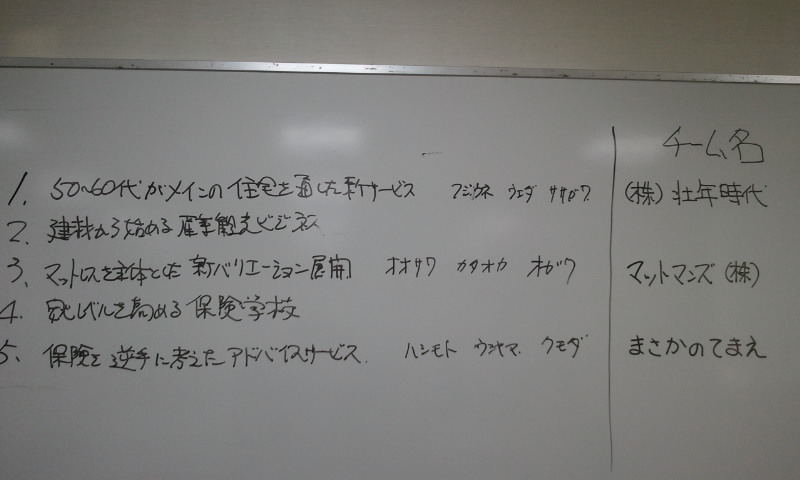 チーム名
1. 50~60代がメインの住宅を通した新サービス フジカネ ウエダ ササガワ (株)壮年時代
2. 建裁から始めるビジネス
3. マットレスを主体とした新バリエーション展開 オオサワ カタオカ オガワ マットマンズ(株)
4. レベルを高める保険学校
5. 保険を逆手に考えたアドバイスサービス. ハシモト ウシヤマ クモダ まさかのてまえ